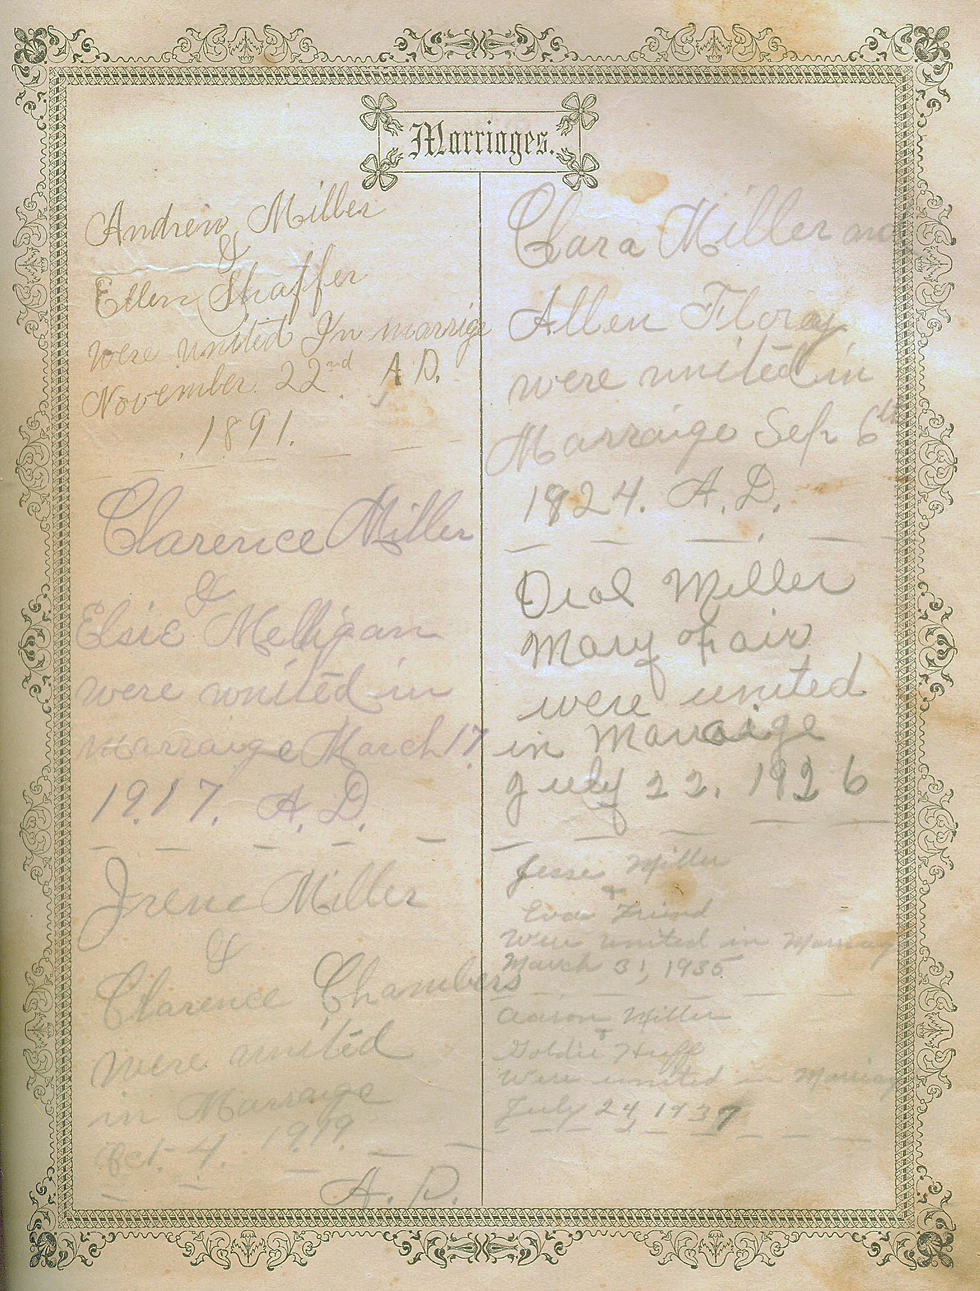 Marriages.
Andrew Miller
&
Ellen Shaffer
were united In marrige
November. 22nd A D.
1891.
Clarence Miller
&
Elsie Melligan
were united in
marraige March 17.
1917. A. D.
Irene Miller
&
Clarence Chambers
were united
in Marraige
Oct. 4 1919.
A. D.
Clara Miller and
Allen Floray
were united in
Marraige Sep 6th
1924. A. D.
Oral Miller
Mary Fair
were united
in Marraige
July 22. 1926
Jesse Miller
&
Eva Friend
Were united in Marriag
March 31, 1935
Aaron Miller
&
Goldie Huff
Were united Marriag
July 24, 1937